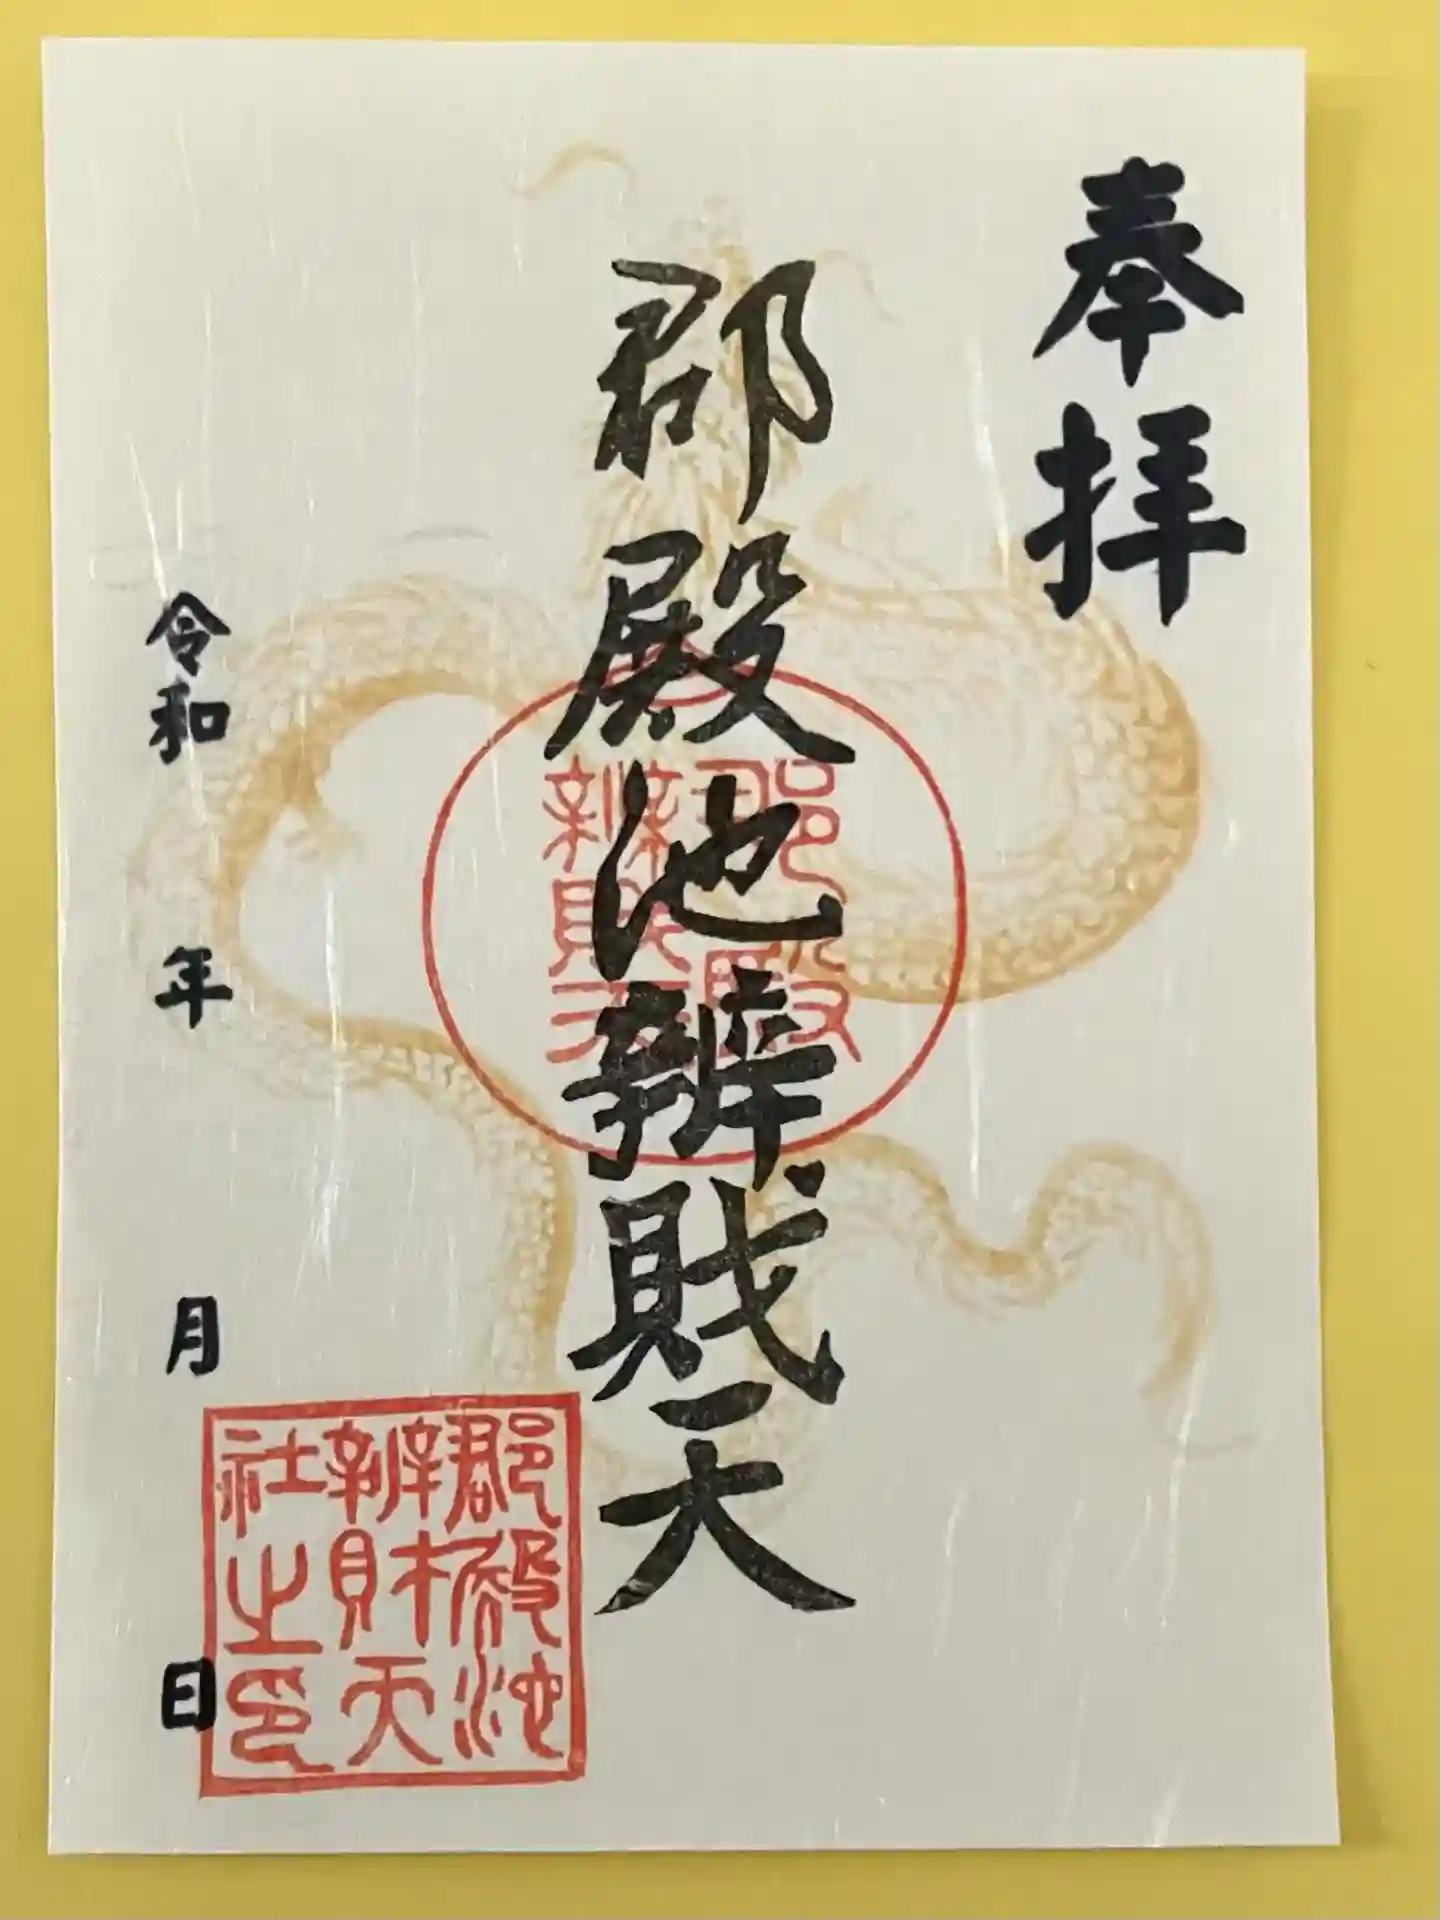 奉拝
郡殿池辨戝天
郡殿
辨戝天
郡殿池
辨財天
社之印
令和 年 月 日